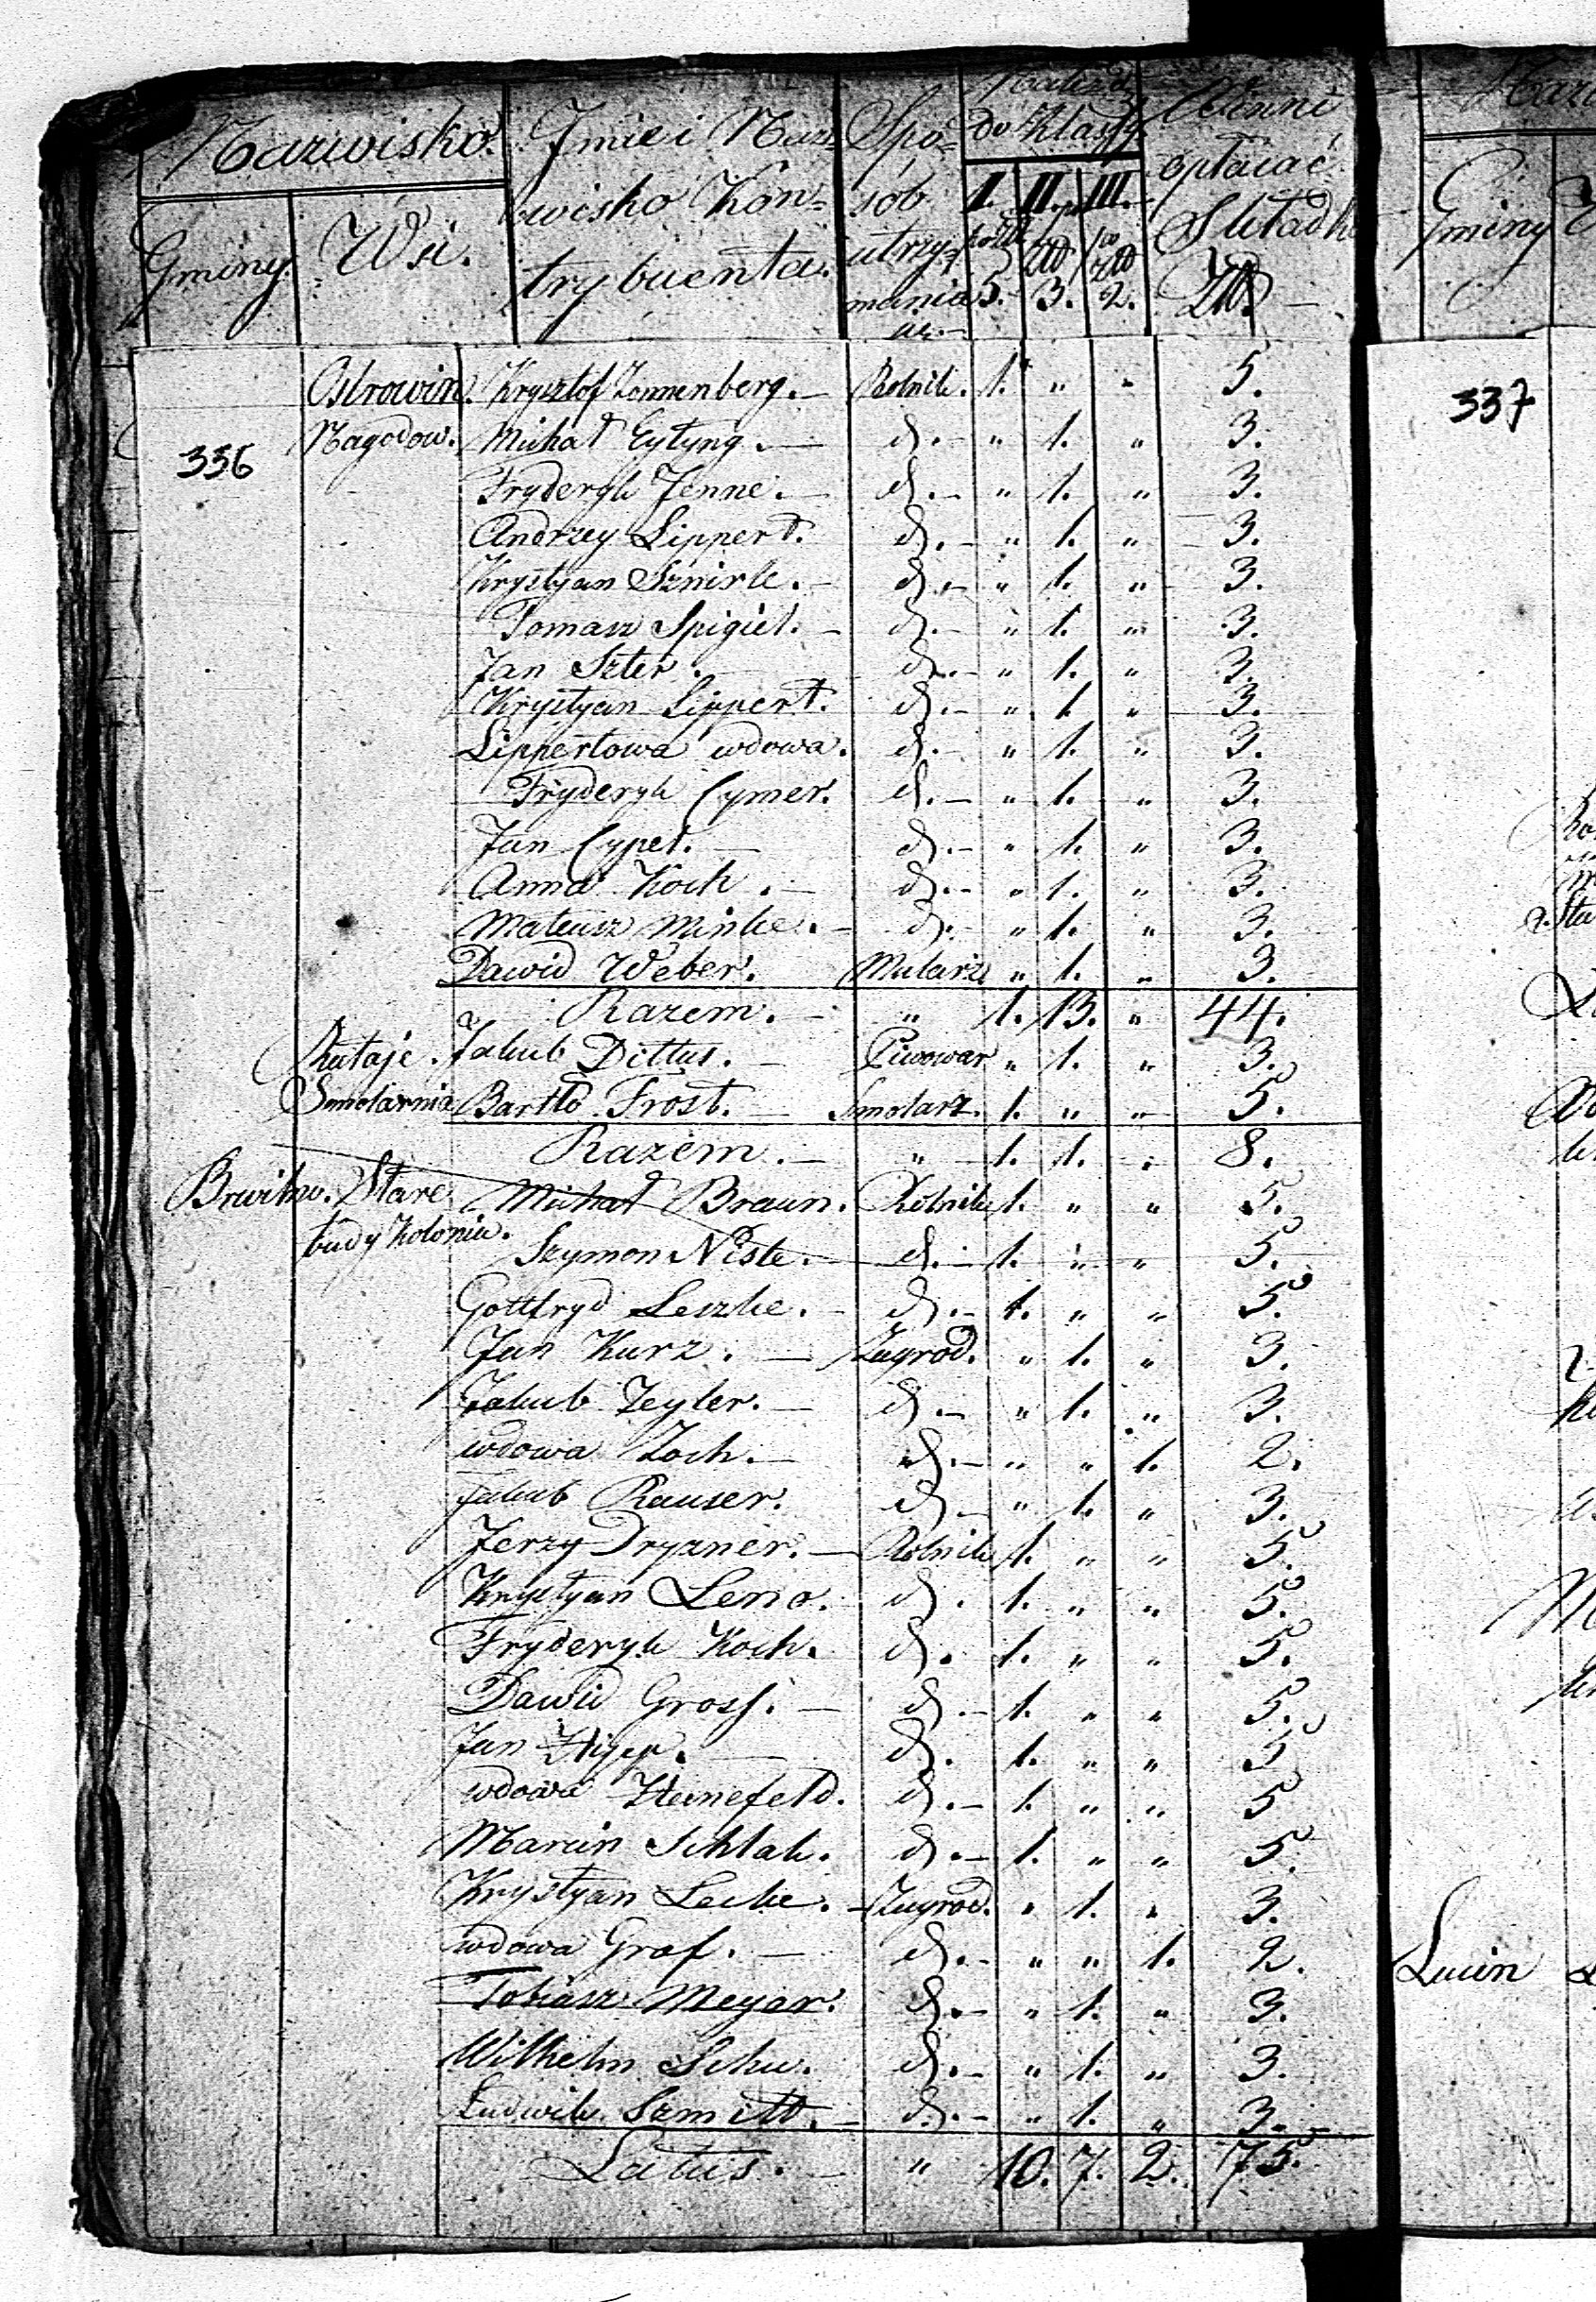 Nazwisko.
Gminy. Wsi.
Imie i Naz=
wisko Kon=
trybuenta.
Spo=
sob
utrzy=
mania
do klassy.
I. II. III.
5. 3. 2.
Winni
opłacać
Składki
Złp
Gminy
336
337
Ostrowin. Krysztof Zonnenberg. Rolnik. 1. " " 5.
Nagodow. Michał Eytyng. d. " 1. " 3.
Fryderyk Jenne. d. " 1. " 3.
Andrzey Lippert. d. " 1. " 3.
Krystyan Sznirle. d. " 1. " 3.
Tomasz Spigiel. d. " 1. " 3.
Jan Szter. d. " 1. " 3.
Krystyan Lippert. d. " 1. " 3.
Lippertowa wdowa. d. " 1. " 3.
Fryderyk Cymer. d. " 1. " 3.
Jan Cypel. d. " 1. " 3.
Anna Koch. d. " 1. " 3.
Mateusz Minke. d. " 1. " 3.
Dawid Weber. Mularz " 1. " 3.
Razem. " 1. 13. " 44.
Rataje. Jakub Dittus. Piwowar " 1. " 3.
Smolarnia Bartło Frost. Smolarz. 1. " " 5.
Razem. " 1. 1. " 8.
Brwilno. Stare Michał Braun. Rolnik 1. " " 5.
budy Kolonia. Szymon Niste. d. 1. " " 5.
Gottfryd Leszke. d. 1. " " 5.
Jan Kurz. Zagrod. " 1. " 3.
Jakub Zeyler. d. " 1. " 3.
wdowa Zoch. d. " " 1. 2.
Jakub Rauser. d. " 1. " 3.
Jerzy Dryzner. Rolnik 1. " " 5.
Krystyan Leno. d. 1. " " 5.
Fryderyk Koch. d. 1. " " 5.
Dawid Gross. d. 1. " " 5.
Jan d. 1. " " 5
wdowa Heinefeld. d. 1. " " 5
Marcin Schlak. d. 1. " " 5.
Krystyan Lecke. Zagrod. " 1. " 3.
wdowa Graf. d. " " 1. 2.
Tobiasz Meyer. d. " 1. " 3.
Wilhelm Schu. d. " 1. " 3.
Ludwik Szmitt. d. " 1. " 3.
Latus. " 10. 7. 2. 75.
Lucin